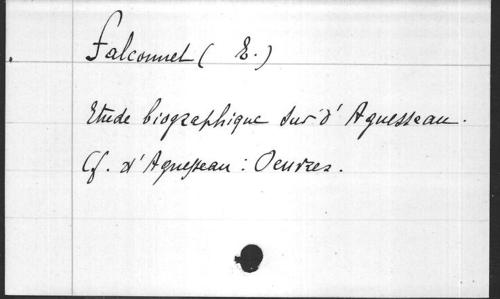 Falconnet ( E.)
Etude biographique sur d' Aguesseau.
Cf. d'Aguesseau : Oeuvres.